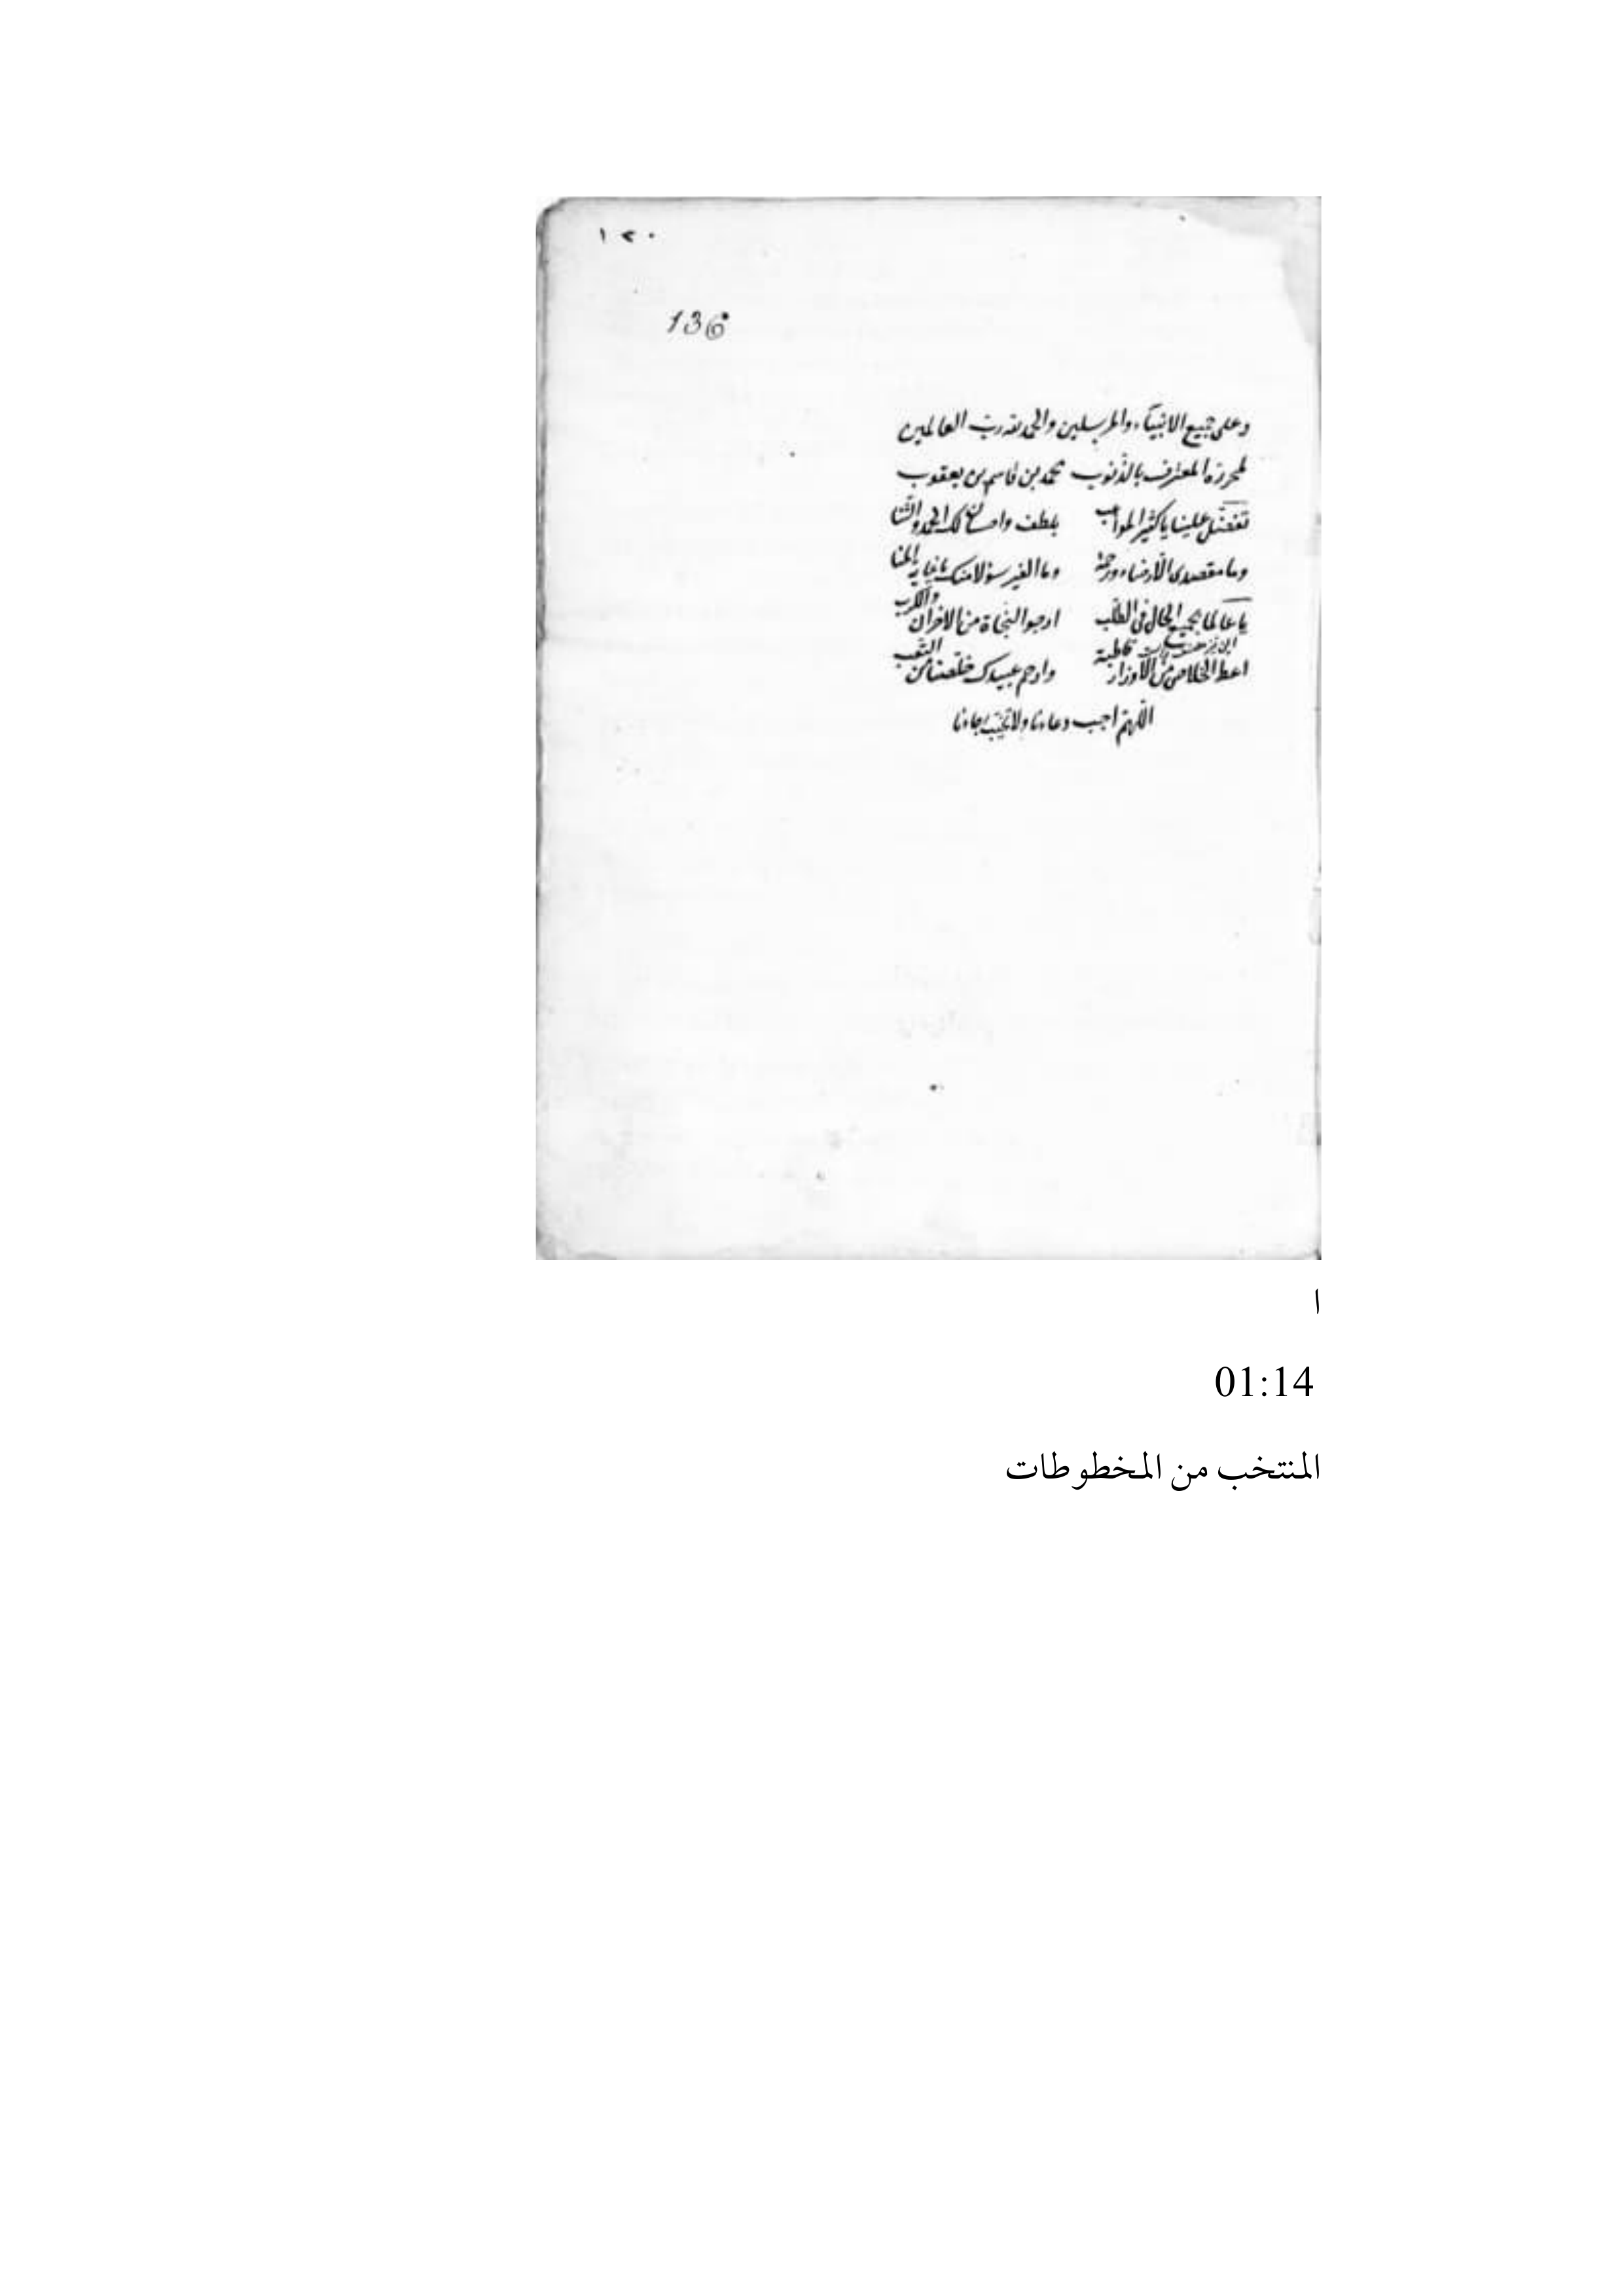 ١٢٠
136
وعلى جميع الانبيآء والمرسلين والحمد لله رب العالمين
لمحرره المعترف بالذنوب محمد بن قاسم بن يعقوب
تفضل علينا يا كثير المواهب بلطف واحسان لك الحمد والثنا
وما مقصدى الا رضاء ورحمة وما الغير سؤلا منك يا غاية المنا
يا عالما بجميع الحال فى الطلب ارجو النجاة من الاحزان والكرب
اعط الخلاص من الاوزار قاطبة وارحم عبيدك خلصنا من التعب
اللهم اجب دعاءنا ولا تخيب رجاءنا
ا
01:14
المنتخب من المخطوطات